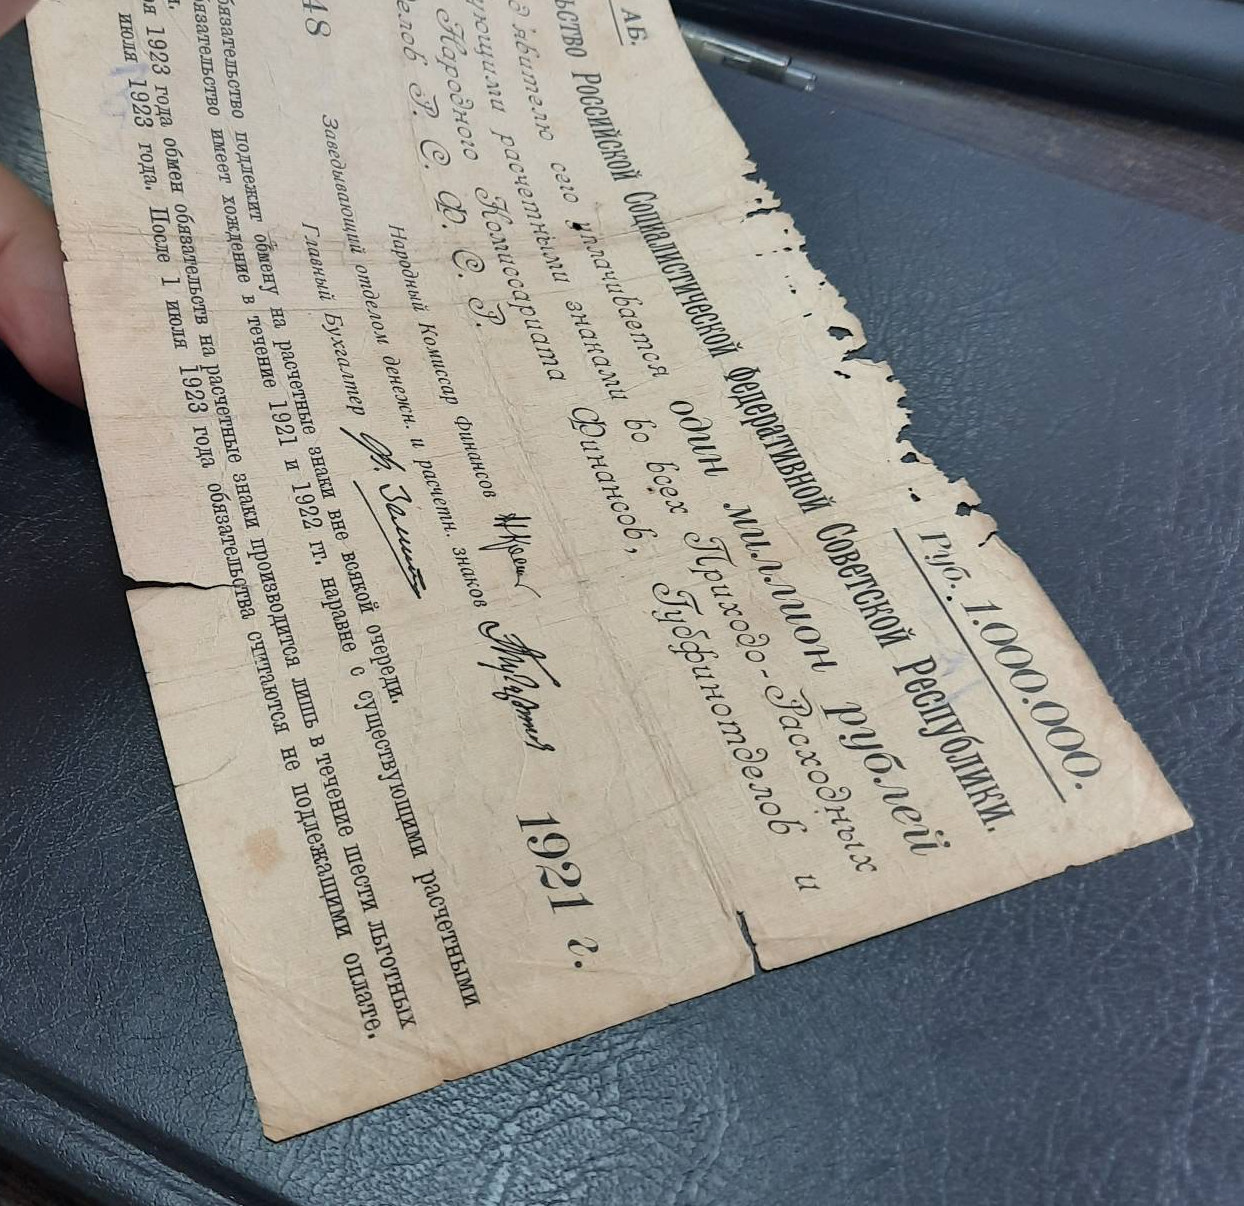 АБ.
Руб. 1.000.000.
Российской Социалистической Федеративной Советской Республики.
сего уплачивается один миллион рублей
расчетными знаками во всех Приходо-Расходных
Народного Комиссариата Финансов, Губфинотделов и
Р. С. Ф. С. Р.
Народный Комиссар финансов
48
Заведывающий отделом денежн. и расчетн. знаков
1921 г.
Главный Бухгалтер
подлежит обмену на расчетные знаки вне всякой очереди.
имеет хождение в течение 1921 и 1922 гг. наравне с существующими расчетными
1923 года обмен обязательств на расчетные знаки производится лишь в течение шести льготных
июля 1923 года. После 1 июля 1923 года обязательства считаются не подлежащими оплате.